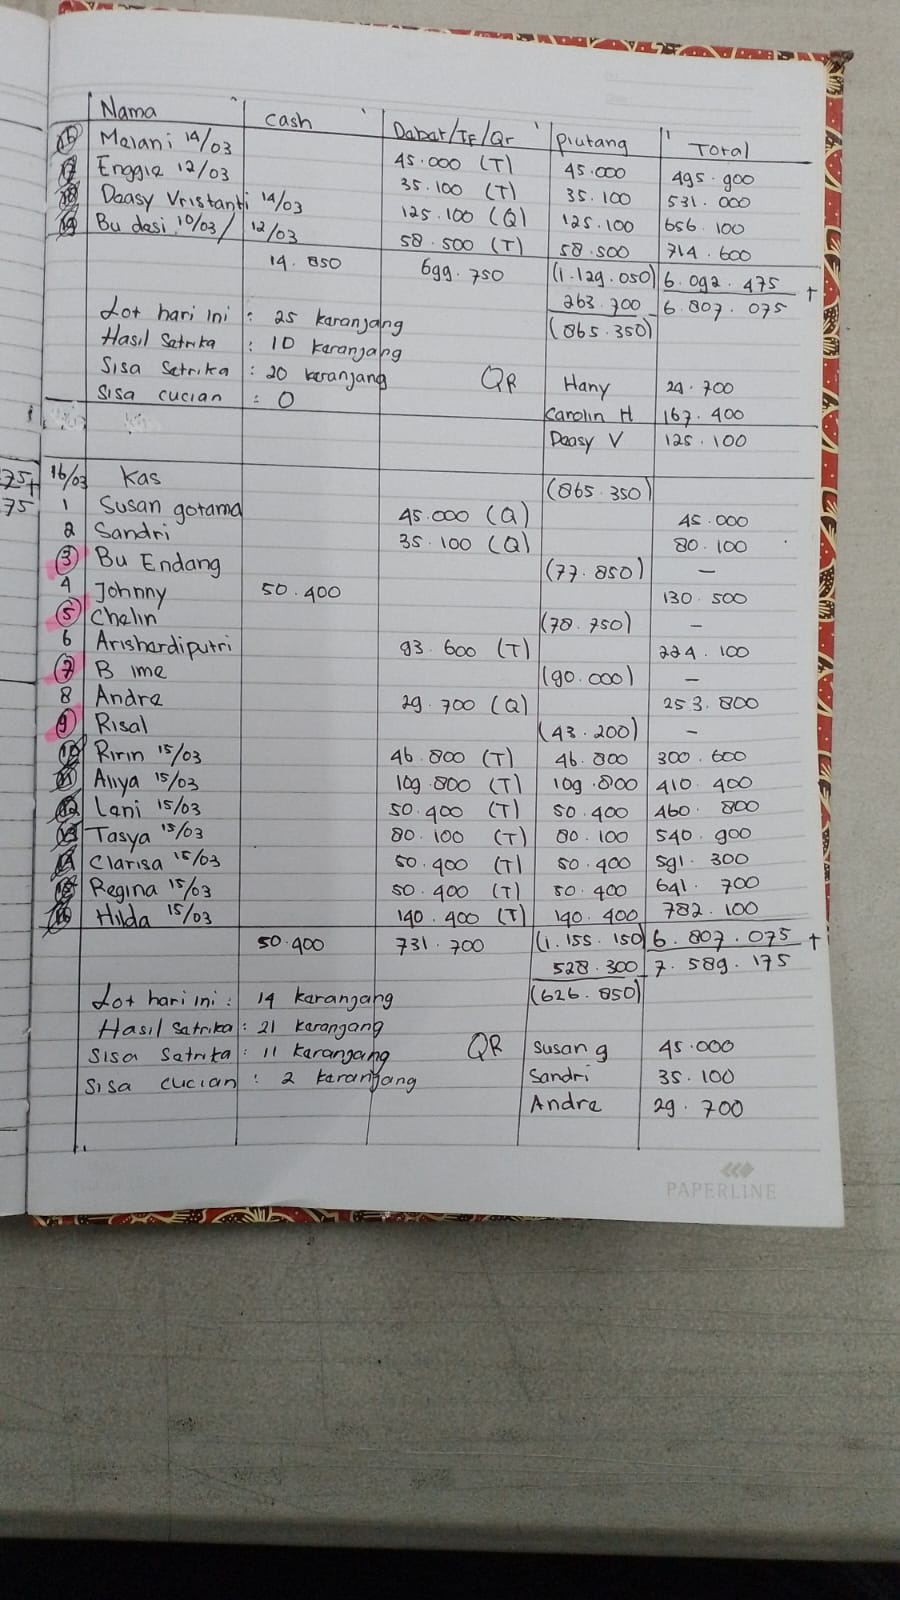 Nama cash Debet/TF/Qr piutang Total
16 Melani 14/03 45.000 (T) 45.000 495.900
17 Enggie 12/03 35.100 (T) 35.100 531.000
18 Deasy Vristanti 14/03 125.100 (Q) 125.100 656.100
19 Bu desi 10/03 / 12/03 58.500 (T) 58.500 714.600
14.850 699.750 (1.129.050) 6.092.475 +
263.700 6.807.075
Lot hari ini : 25 keranjang (865.350)
Hasil Setrika : 10 keranjang
Sisa Setrika : 20 keranjang QR Hany 29.700
Sisa cucian : 0 Carolin H 167.400
Deasy V 125.100
75+ 16/03 Kas (865.350)
75 1 Susan gotama 45.000 (Q) 45.000
2 Sandri 35.100 (Q) 80.100
3 Bu Endang (77.850) –
4 Johnny 50.400 130.500
5 Chelin (78.750) –
6 Arishardiputri 93.600 (T) 224.100
7 B ime (90.000) –
8 Andre 29.700 (Q) 253.800
9 Risal (43.200) –
10 Ririn 15/03 46.800 (T) 46.800 300.600
11 Aliya 15/03 109.800 (T) 109.800 410.400
12 Leni 15/03 50.400 (T) 50.400 460.800
13 Tasya 15/03 80.100 (T) 80.100 540.900
14 Clarisa 15/03 50.400 (T) 50.400 591.300
15 Regina 15/03 50.400 (T) 50.400 641.700
16 Hilda 15/03 140.400 (T) 140.400 782.100
50.400 731.700 (1.155.150) 6.807.075 +
528.300 7.589.175
Lot hari ini : 14 keranjang (626.850)
Hasil Setrika : 21 keranjang
Sisa Setrika : 11 Keranjang QR Susan g 45.000
Sisa cucian : 2 keranjang Sandri 35.100
Andre 29.700
PAPERLINE